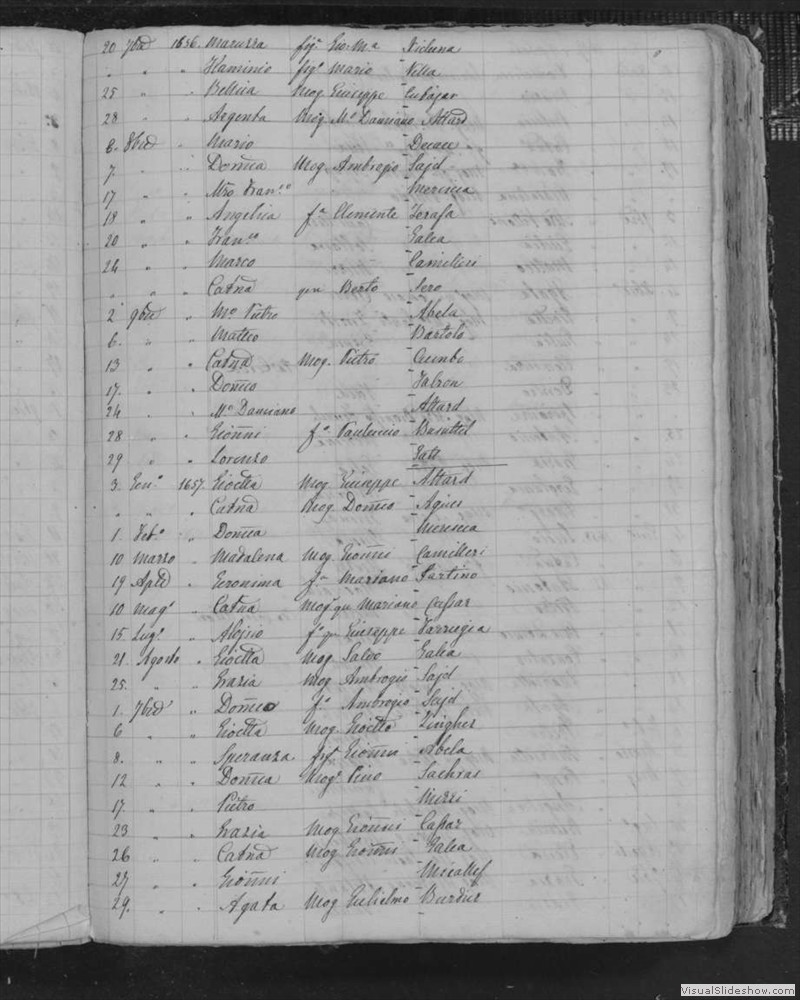 20 7bre 1656. Maruzza fig.a Gio: M.a Xicluna
" " " Flaminio fig.o Mario Vella
25 " " Bettina Mog. Giuseppe Cutajar
28 " " Argenta Mog. M.o Damiano Attard
6. 8bre " Mario
7. " " Dom̄ca Mog. Ambrogio Sajd.
17 " " Mro Fran.co
18 " " Angelica f.a Clemente Zerafa
20 " " Fran.co Galea
24 " " Marco Camilleri
" " " Catña qm Berto
2 9bre " M.o Pietro Abela
6. " " Matteo Bartolo
13 " " Catña Mog. Pietro Cumbo
17. " " Dom̄co Falzon
24 " " M.o Damiano Attard
28 " " Gioñni f.o Paulucio Busuttil
29 " " Lorenzo Gatt
3. Gen.o 1657. Gioetta Mog. Giuseppe Attard
" " " Catña Mog. Dom̄co Agius
1. Feb.o " Dom̄ca
10 Marzo " Madalena Mog. Gioñni Camilleri
19 Aple " Geronima f.a Mariano
10 Mag.o " Catña Mog. qm Mariano Cassar
15 Lug.o " Aloisio f.o qm Giuseppe Farrugia
21. Agosto " Gioetta Mog. Salvo Galea
25. " " Grazia Mog. Ambrogio Sajd
1. 7bre " Dom̄co f.o Ambrogio Sajd
6 " " Gioetta Mog. Gioetto
8. " " Speranza fig.a Gioñni Abela
12 " " Dom̄ca Mog. Pino
17. " " Pietro
23 " " Grazia Mog Gioñni Cassar
26 " " Catña Mog Gioñni Galea
27 " " Gioñni Micallef
29. " " Agata Mog Gulielmo
VisualSlideshow.com